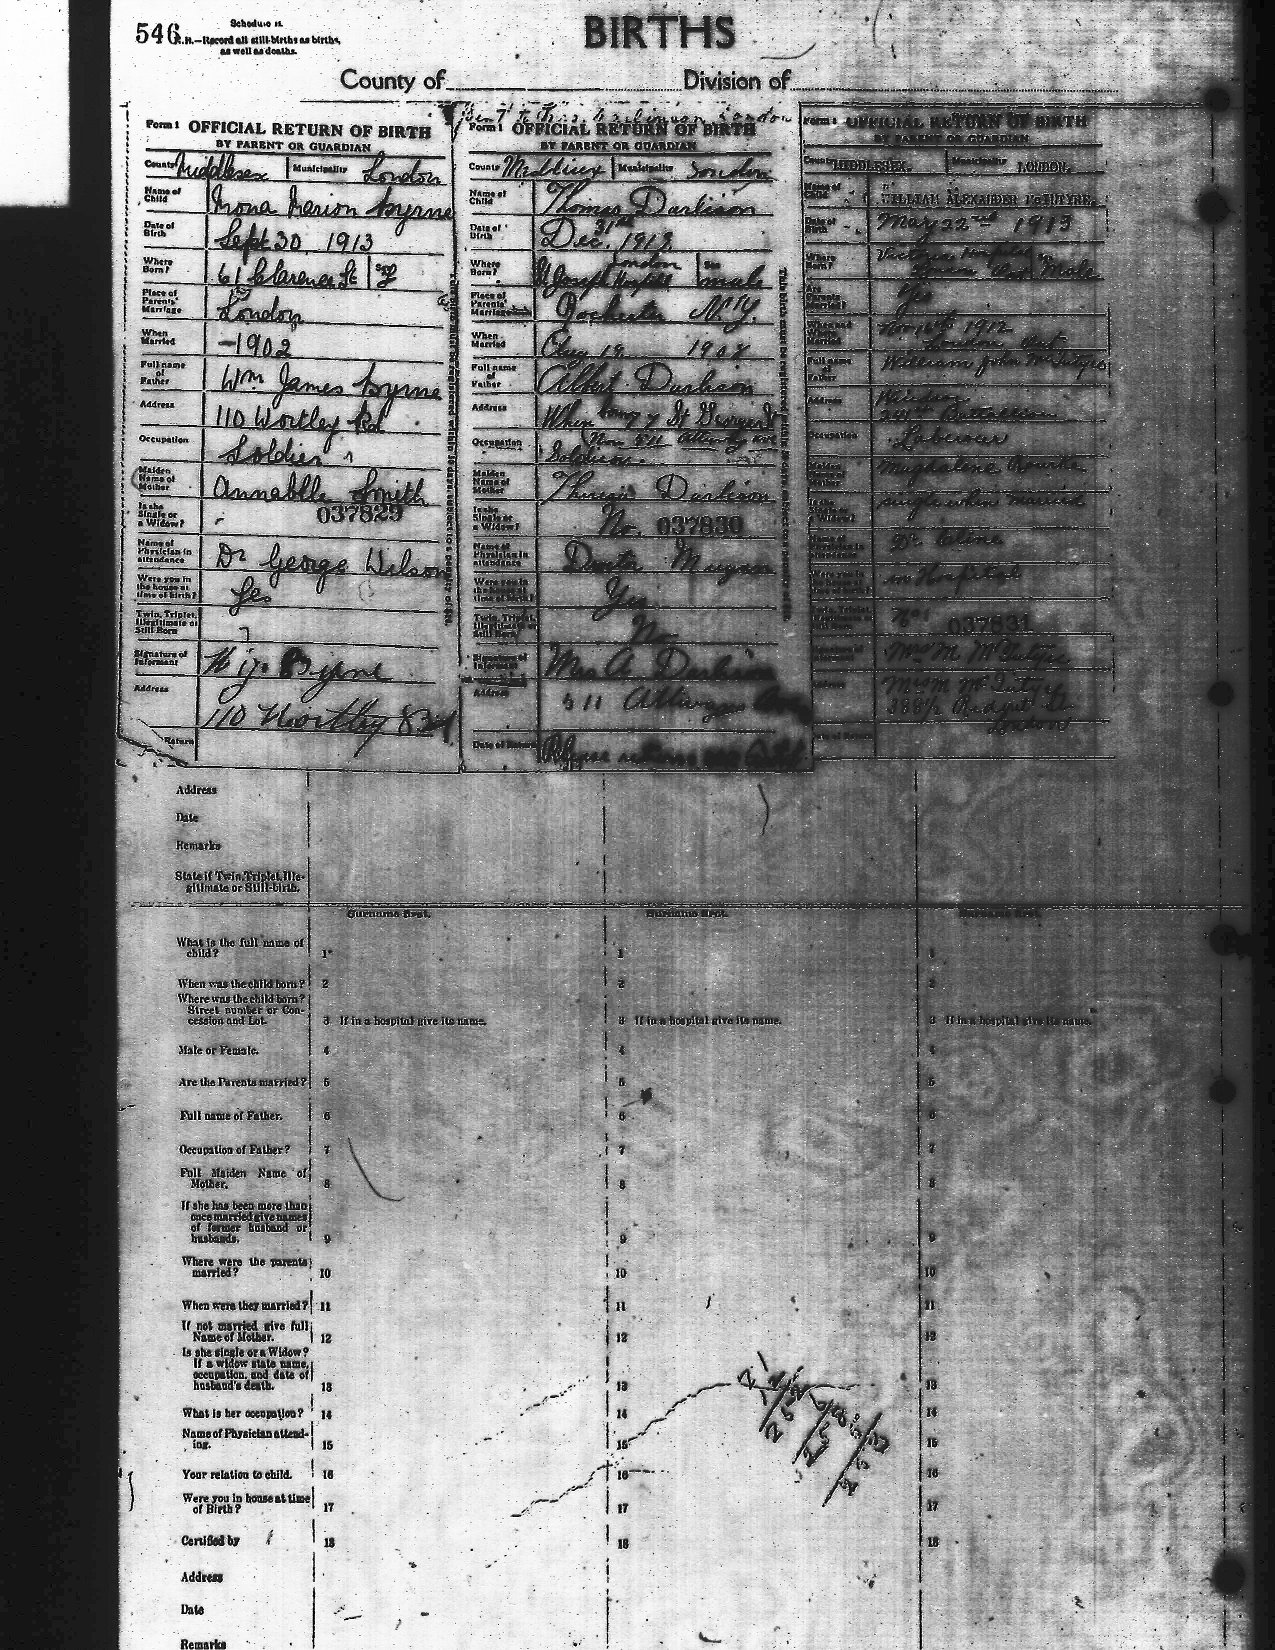 546
Schedule A.
N.B.—Record all still-births as births,
as well as deaths.
BIRTHS
County of
Division of
Form 1 OFFICIAL RETURN OF BIRTH
BY PARENT OR GUARDIAN
County Middlesex Municipality London
Name of Child Mona Marion Byrne
Date of Birth Sept 30 1913
Where Born? 61 Clarence St Sex F
Place of Parents' Marriage London
When Married 1902
Full name of Father Wm James Byrne
Address 110 Wortley Rd
Occupation Soldier
Maiden Name of Mother Annabelle Smith
Is she Single or a Widow? 037829
Name of Physician in attendance Dr George Wilson
Were you in the house at time of birth? Yes
Twin, Triplet, Illegitimate or Still-Born
Signature of Informant W. J. Byrne
Address 110 Wortley Rd
Return
Form 1 OFFICIAL RETURN OF BIRTH
BY PARENT OR GUARDIAN
County Middlesex Municipality London
Name of Child Thomas Darlison
Date of Birth Dec. 31st 1912
Where Born? St Joseph Hospital London Sex male
Place of Parents' Marriage Rochester N.Y.
When Married Aug 19 1908
Full name of Father Albert Darlison
Address When born 77 St George St
Now 511
Occupation Soldier
Maiden Name of Mother Darlison
Is she Single or a Widow? No. 037830
Name of Physician in attendance Doctor Mugan
Were you in the house at time of birth? Yes
Twin, Triplet, Illegitimate or Still-Born No
Signature of Informant Mrs A Darlison
Address 511
Date of Return
Form 1 OFFICIAL RETURN OF BIRTH
BY PARENT OR GUARDIAN
County MIDDLESEX. Municipality LONDON.
Name of Child WILLIAM ALEXANDER McINTYRE.
Date of Birth May 22nd 1913
Where Born? Victoria Hospital London Ont Sex Male
Are Parents Married? Yes
When and Where Married Nov 16th 1912
London Ont
Full name of Father William John McIntyre
Address
Battallion
Occupation Labourer
Maiden Name of Mother Magdalene Rourke
Is she Single or a Widow? single when married
Name of Physician in attendance Dr Cline
Were you in the house at time of birth? in Hospital
Twin, Triplet, Illegitimate or Still-Born No 037831
Signature of Informant Mrs M McIntyre
Address Mrs M McIntyre
388½ Ridout St
London
Date of Return
Address
Date
Remarks
State if Twin, Triplet, Ille-
gitimate or Still-birth.
Surname first. Surname first. Surname first.
What is the full name of
child? 1 1 1
When was the child born? 2 2 2
Where was the child born?
Street number or Con-
cession and Lot. 3 If in a hospital give its name. 3 If in a hospital give its name. 3 If in a hospital give its name.
Male or Female. 4 4 4
Are the Parents married? 5 5 5
Full name of Father. 6 6 6
Occupation of Father? 7 7 7
Full Maiden Name of
Mother. 8 8 8
If she has been more than
once married give names
of former husband or
husbands. 9 9 9
Where were the parents
married? 10 10 10
When were they married? 11 11 11
If not married give full
Name of Mother. 12 12 12
Is she single or a Widow?
If a widow state name,
occupation, and date of
husband's death. 13 13 13
What is her occupation? 14 14 14
Name of Physician attend-
ing. 15 15 15
Your relation to child. 16 16 16
Were you in house at time
of Birth? 17 17 17
Certified by 18 18 18
Address
Date
Remarks